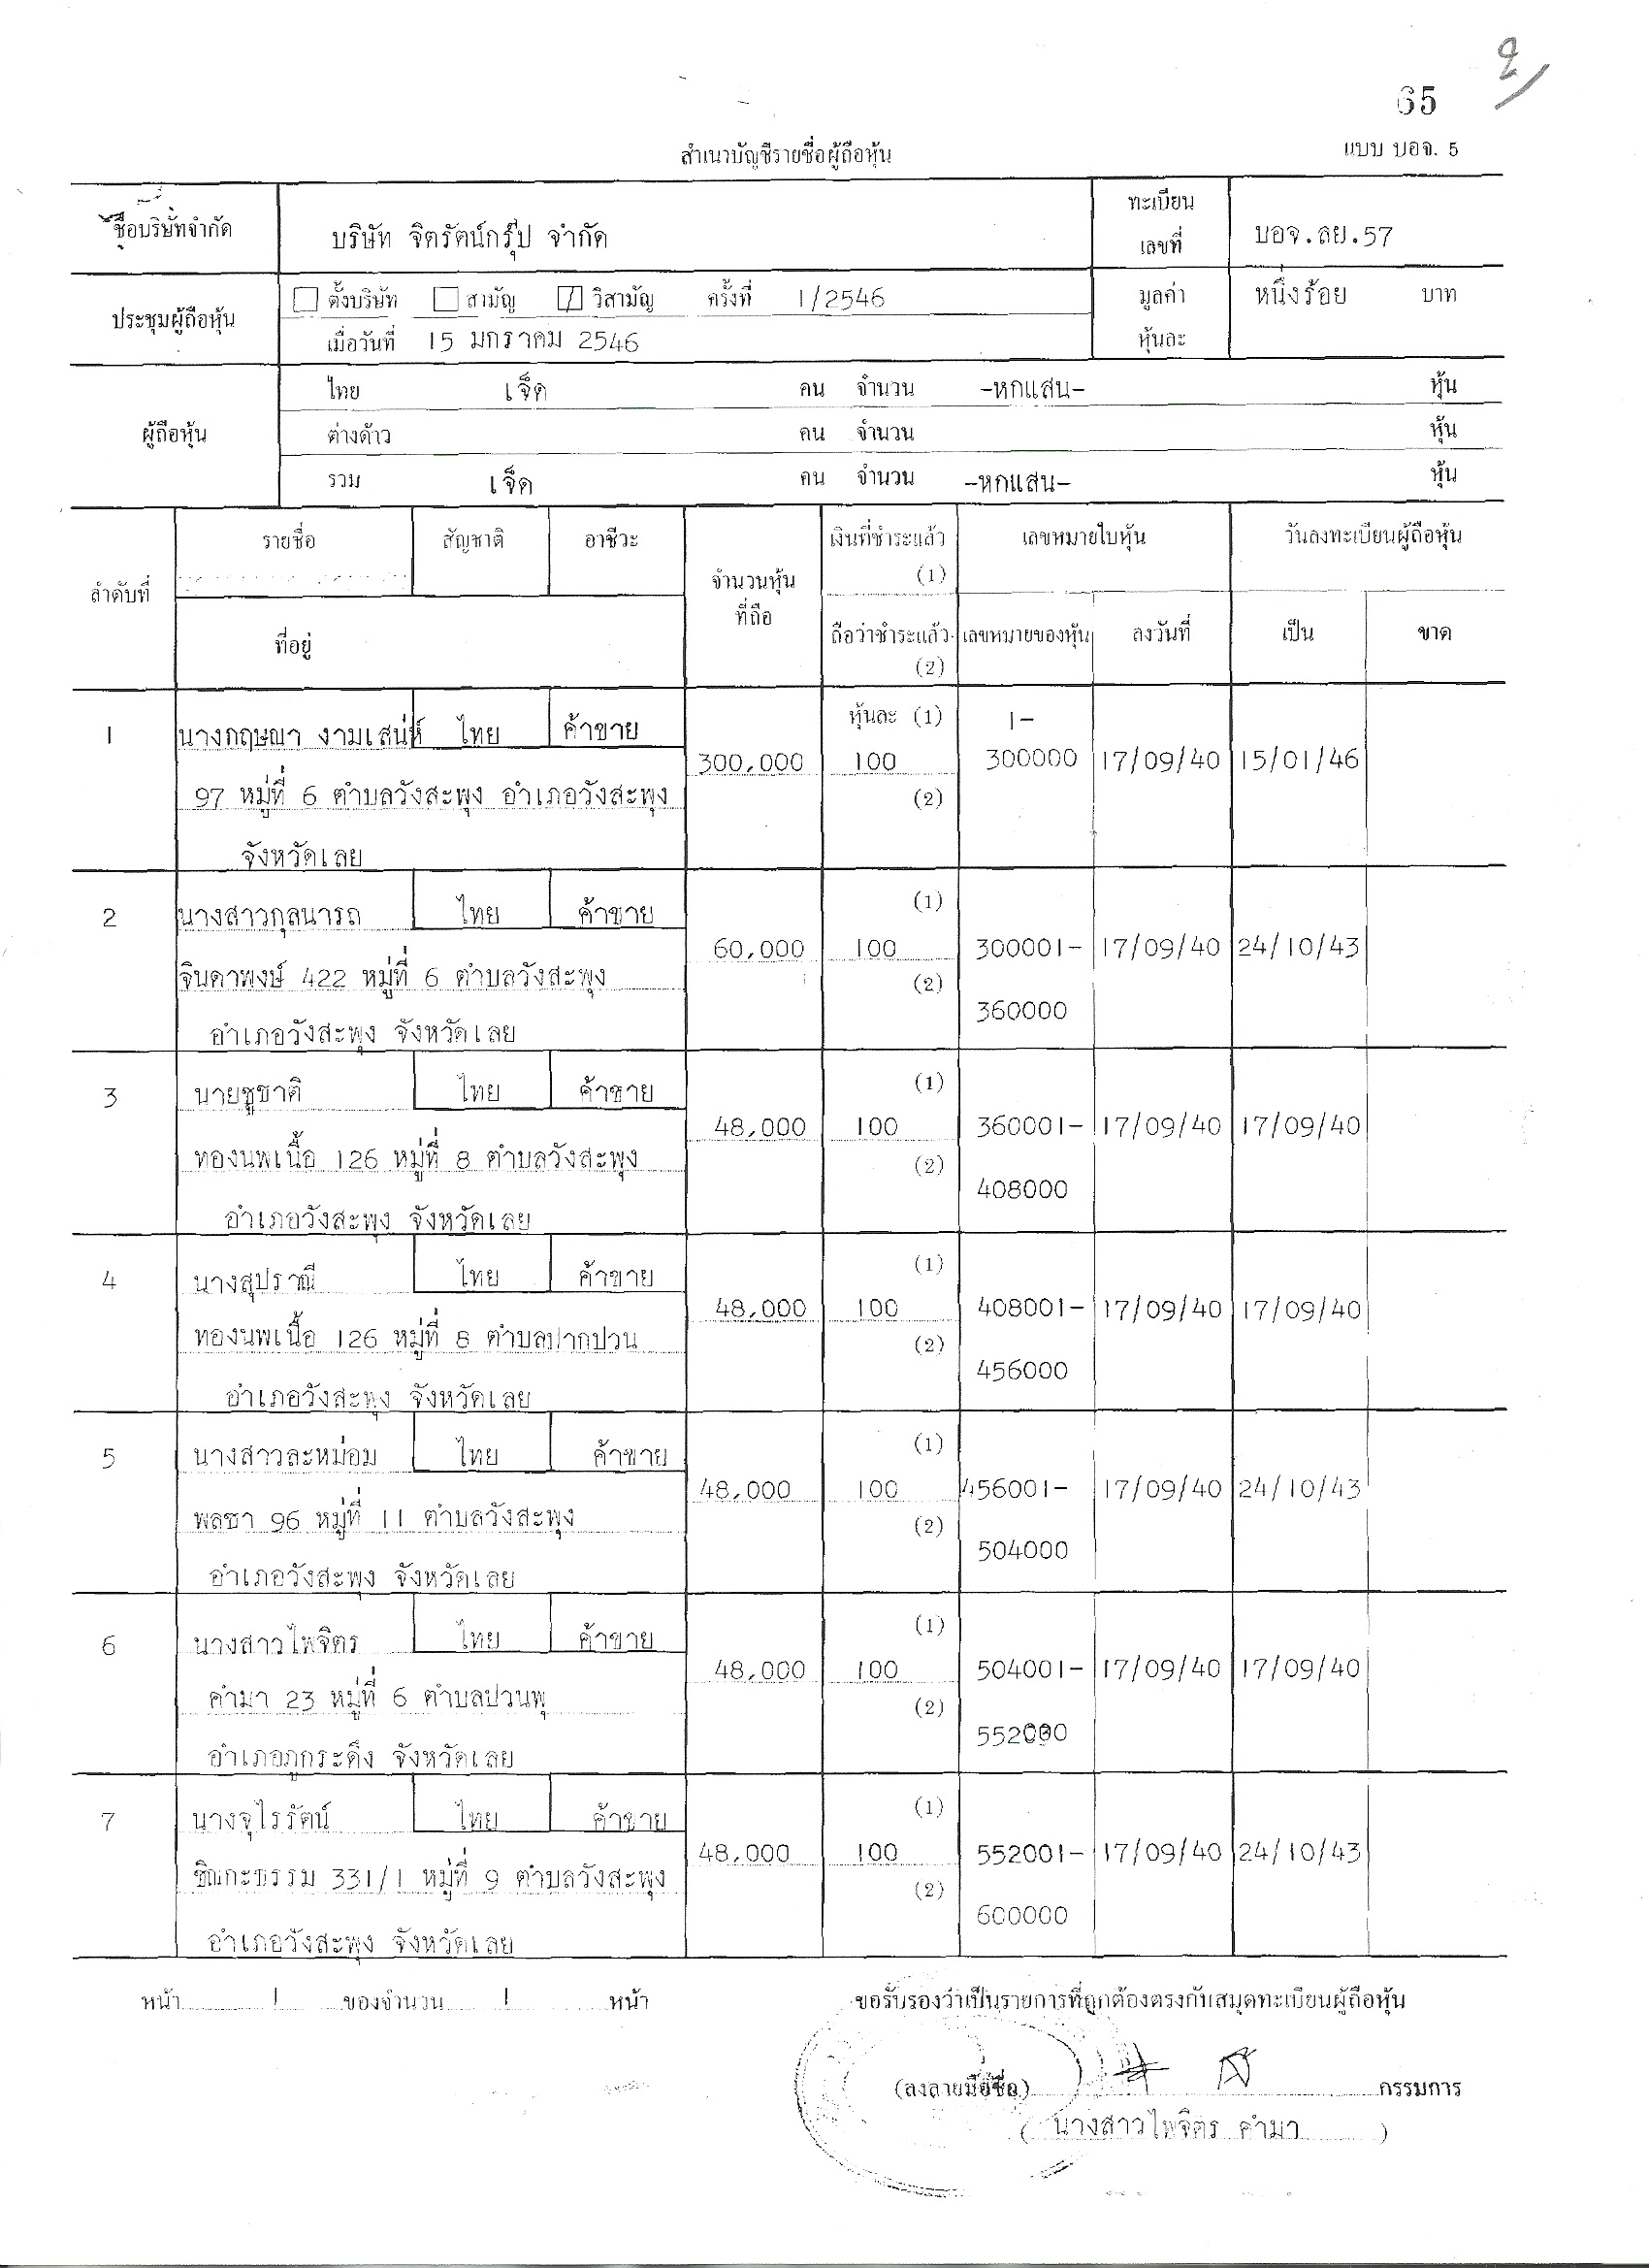 65
สำเนาบัญชีรายชื่อผู้ถือหุ้น
แบบ บอจ. 5
ชื่อบริษัทจำกัด บริษัท จิตรัตน์กรุ๊ป จำกัด ทะเบียน เลขที่ บอจ.ลย.57
ประชุมผู้ถือหุ้น ตั้งบริษัท สามัญ วิสามัญ ครั้งที่ 1/2546 มูลค่า หนึ่งร้อย บาท
เมื่อวันที่ 15 มกราคม 2546 หุ้นละ
ผู้ถือหุ้น
ไทย เจ็ด คน จำนวน -หกแสน- หุ้น
ต่างด้าว คน จำนวน หุ้น
รวม เจ็ด คน จำนวน -หกแสน- หุ้น
ลำดับที่ รายชื่อ สัญชาติ อาชีวะ จำนวนหุ้น ที่ถือ เงินที่ชำระแล้ว (1) เลขหมายใบหุ้น วันลงทะเบียนผู้ถือหุ้น
ที่อยู่ ถือว่าชำระแล้ว (2) เลขหมายของหุ้น ลงวันที่ เป็น ขาด
1 นางกฤษณา งามเสน่ห์ ไทย ค้าขาย หุ้นละ (1) 1-
300,000 100 300000 17/09/40 15/01/46
97 หมู่ที่ 6 ตำบลวังสะพุง อำเภอวังสะพุง (2)
จังหวัดเลย
2 นางสาวกุลนารถ ไทย ค้าขาย (1)
60,000 100 300001- 17/09/40 24/10/43
จินดาพงษ์ 422 หมู่ที่ 6 ตำบลวังสะพุง (2)
360000
อำเภอวังสะพุง จังหวัดเลย
3 นายชูชาติ ไทย ค้าขาย (1)
48,000 100 360001- 17/09/40 17/09/40
ทองนพเนื้อ 126 หมู่ที่ 8 ตำบลวังสะพุง (2)
408000
อำเภอวังสะพุง จังหวัดเลย
4 นางสุปราณี ไทย ค้าขาย (1)
48,000 100 408001- 17/09/40 17/09/40
ทองนพเนื้อ 126 หมู่ที่ 8 ตำบลปากปวน (2)
456000
อำเภอวังสะพุง จังหวัดเลย
5 นางสาวละหม่อม ไทย ค้าขาย (1)
48,000 100 456001- 17/09/40 24/10/43
พลซา 96 หมู่ที่ 11 ตำบลวังสะพุง (2)
504000
อำเภอวังสะพุง จังหวัดเลย
6 นางสาวไพจิตร ไทย ค้าขาย (1)
48,000 100 504001- 17/09/40 17/09/40
คำมา 23 หมู่ที่ 6 ตำบลปวนพุ (2)
552000
อำเภอภูกระดึง จังหวัดเลย
7 นางจุไรรัตน์ ไทย ค้าขาย (1)
48,000 100 552001- 17/09/40 24/10/43
ชิณกะธรรม 331/1 หมู่ที่ 9 ตำบลวังสะพุง (2)
600000
อำเภอวังสะพุง จังหวัดเลย
หน้า 1 ของจำนวน 1 หน้า ขอรับรองว่าเป็นรายการที่ถูกต้องตรงกับสมุดทะเบียนผู้ถือหุ้น
(ลงลายมือชื่อ) กรรมการ
( นางสาวไพจิตร คำมา )